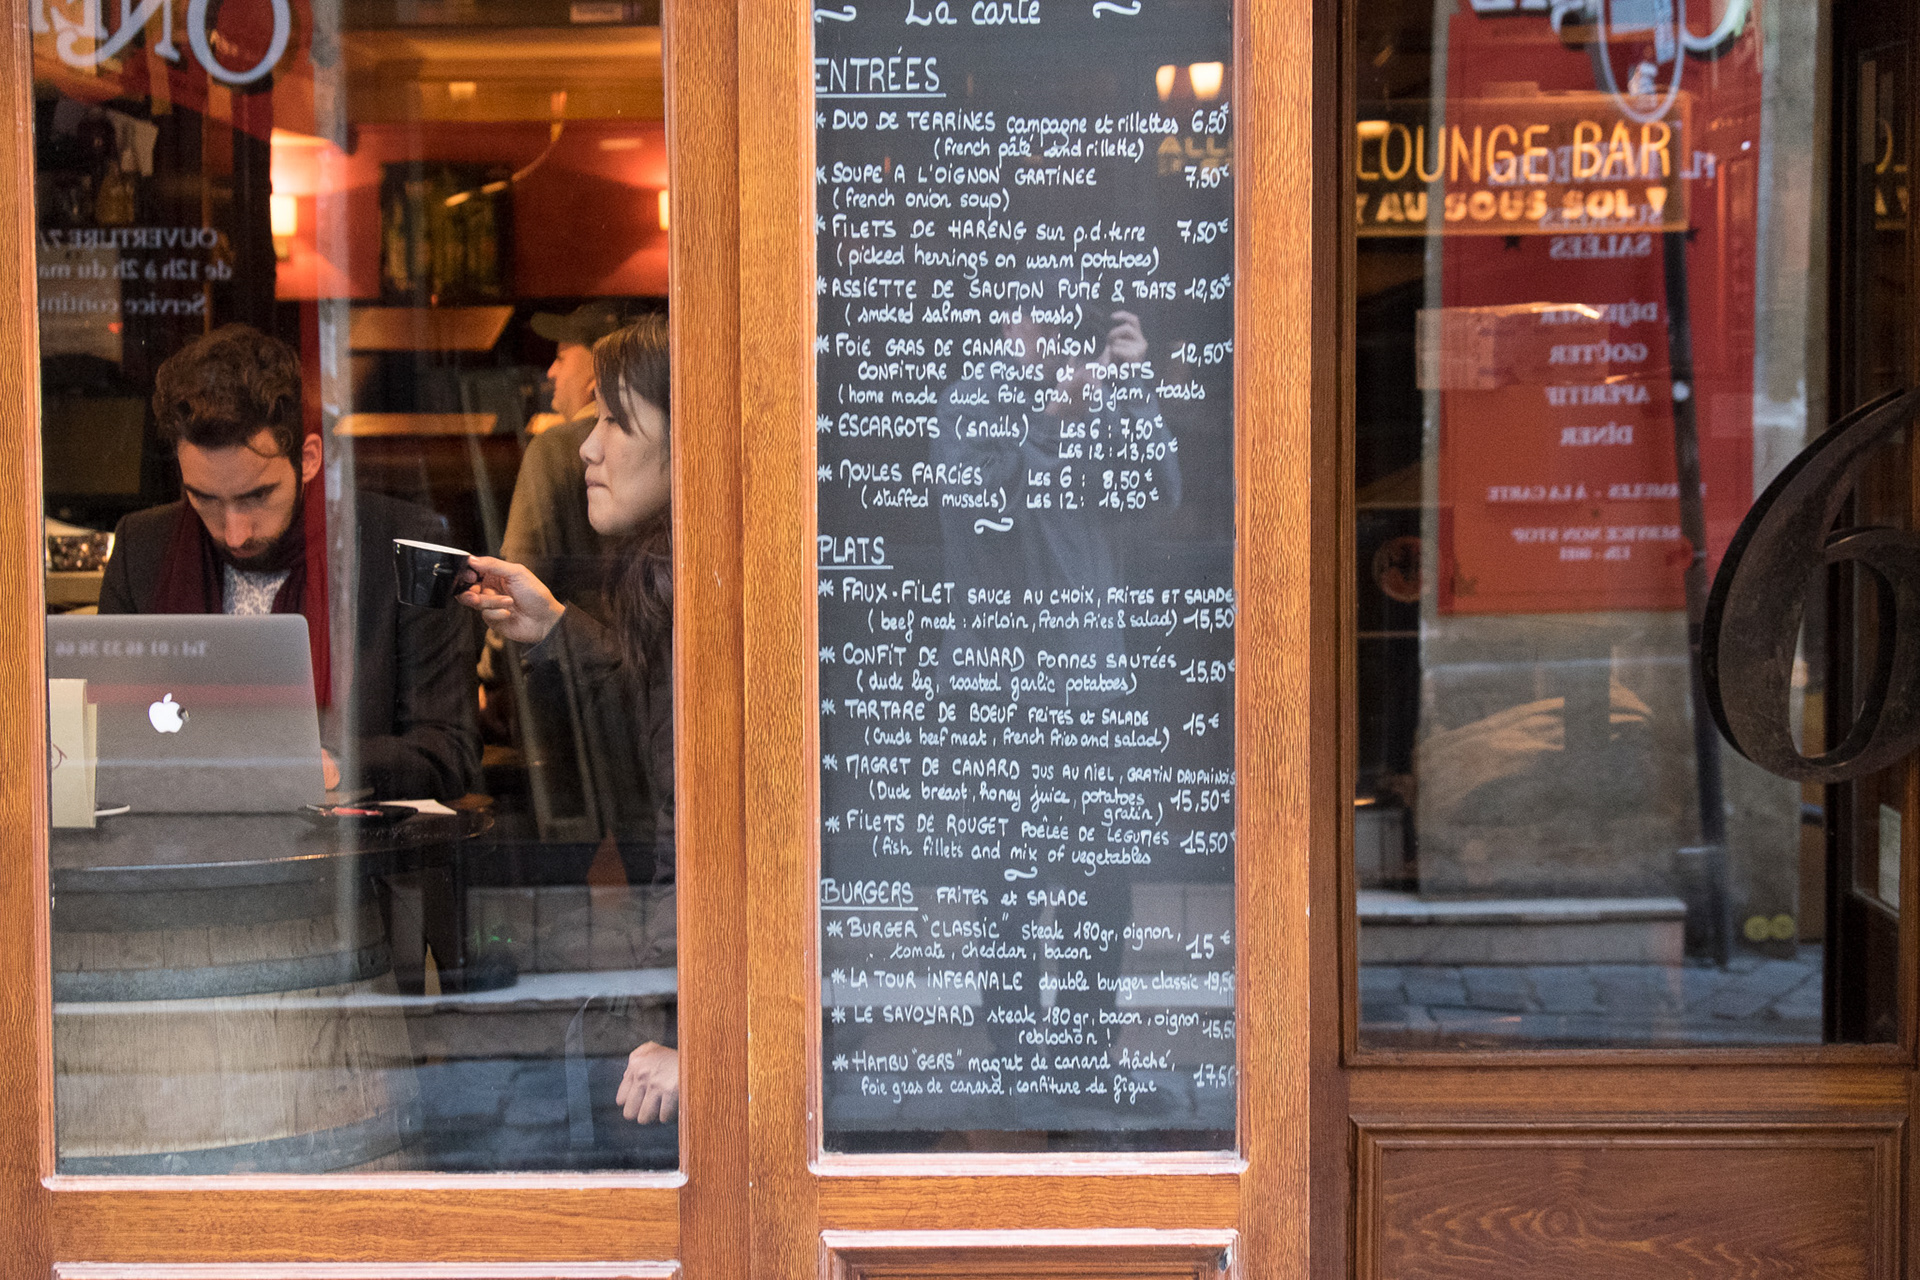 La carte
ENTRÉES
* DUO DE TERRINES campagne et rillettes 6,50€
(french pâté and rillette)
* SOUPE A L'OIGNON GRATINEE 7,50€
(french onion soup)
* FILETS DE HARENG sur p.d.terre 7,50€
(picked herrings on warm potatoes)
* ASSIETTE DE SAUMON FUMÉ & TOATS 12,50€
(smoked salmon and toasts)
* FOIE GRAS DE CANARD MAISON 12,50€
CONFITURE DE FIGUES et TOASTS
(home made duck foie gras, fig jam, toasts
* ESCARGOTS (snails) LES 6 : 7,50€
LES 12 : 13,50€
* MOULES FARCIES LES 6 : 8,50€
(stuffed mussels) LES 12 : 16,50€
PLATS
* FAUX-FILET SAUCE AU CHOIX, FRITES ET SALADE
(beef meat : sirloin, french fries & salad) 15,50
* CONFIT DE CANARD POMMES SAUTÉES 15,50€
(duck leg, roasted garlic potatoes)
* TARTARE DE BOEUF FRITES et SALADE 15€
(Crude beef meat, french fries and salad)
* MAGRET DE CANARD JUS AU MIEL, GRATIN DAUPHINOIS
(Duck breast, honey juice, potatoes 15,50€
gratin)
* FILETS DE ROUGET POÊLÉE DE LEGUMES 15,50€
(fish fillets and mix of vegetables
BURGERS FRITES et SALADE
* BURGER "CLASSIC" steak 180gr, oignon, 15€
tomate, cheddar, bacon
* LA TOUR INFERNALE double burger classic 19,50
* LE SAVOYARD steak 180gr, bacon, oignon, 15,50
reblochon !
* HAMBU"GERS" magret de canard hâché, 17,50
foie gras de canard, confiture de figue
LOUNGE BAR
AU SOUS SOL
OUVERTURE 7/
de 12h à 2h du ma
Service continu
Tel : 01 46 33 36 66
SALÉES
DÉJEUNER
GOÛTER
APERITIF
DÎNER
A LA CARTE
SERVICE NON STOP
6